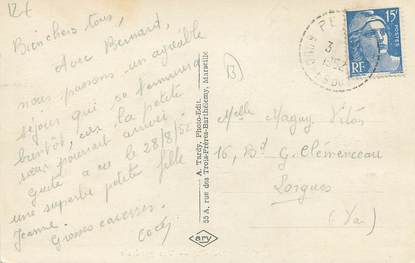 Bien chers tous,
Avec Bernard,
nous passons un agréable
séjour qui se terminera
bientôt, car la petite
sœur pourrait arriver.
a eu le 28/8/52
une superbe petite fille
Jeanne.
Grosses caresses.
A. Tardy, Photo-Edit.
55 A, rue des Trois-Frères-Barthélemy, Marseille
ary
B
15F
POSTES
RF
Melle Maguy
16, Bd G. Clémenceau
Lorgues
(Var)